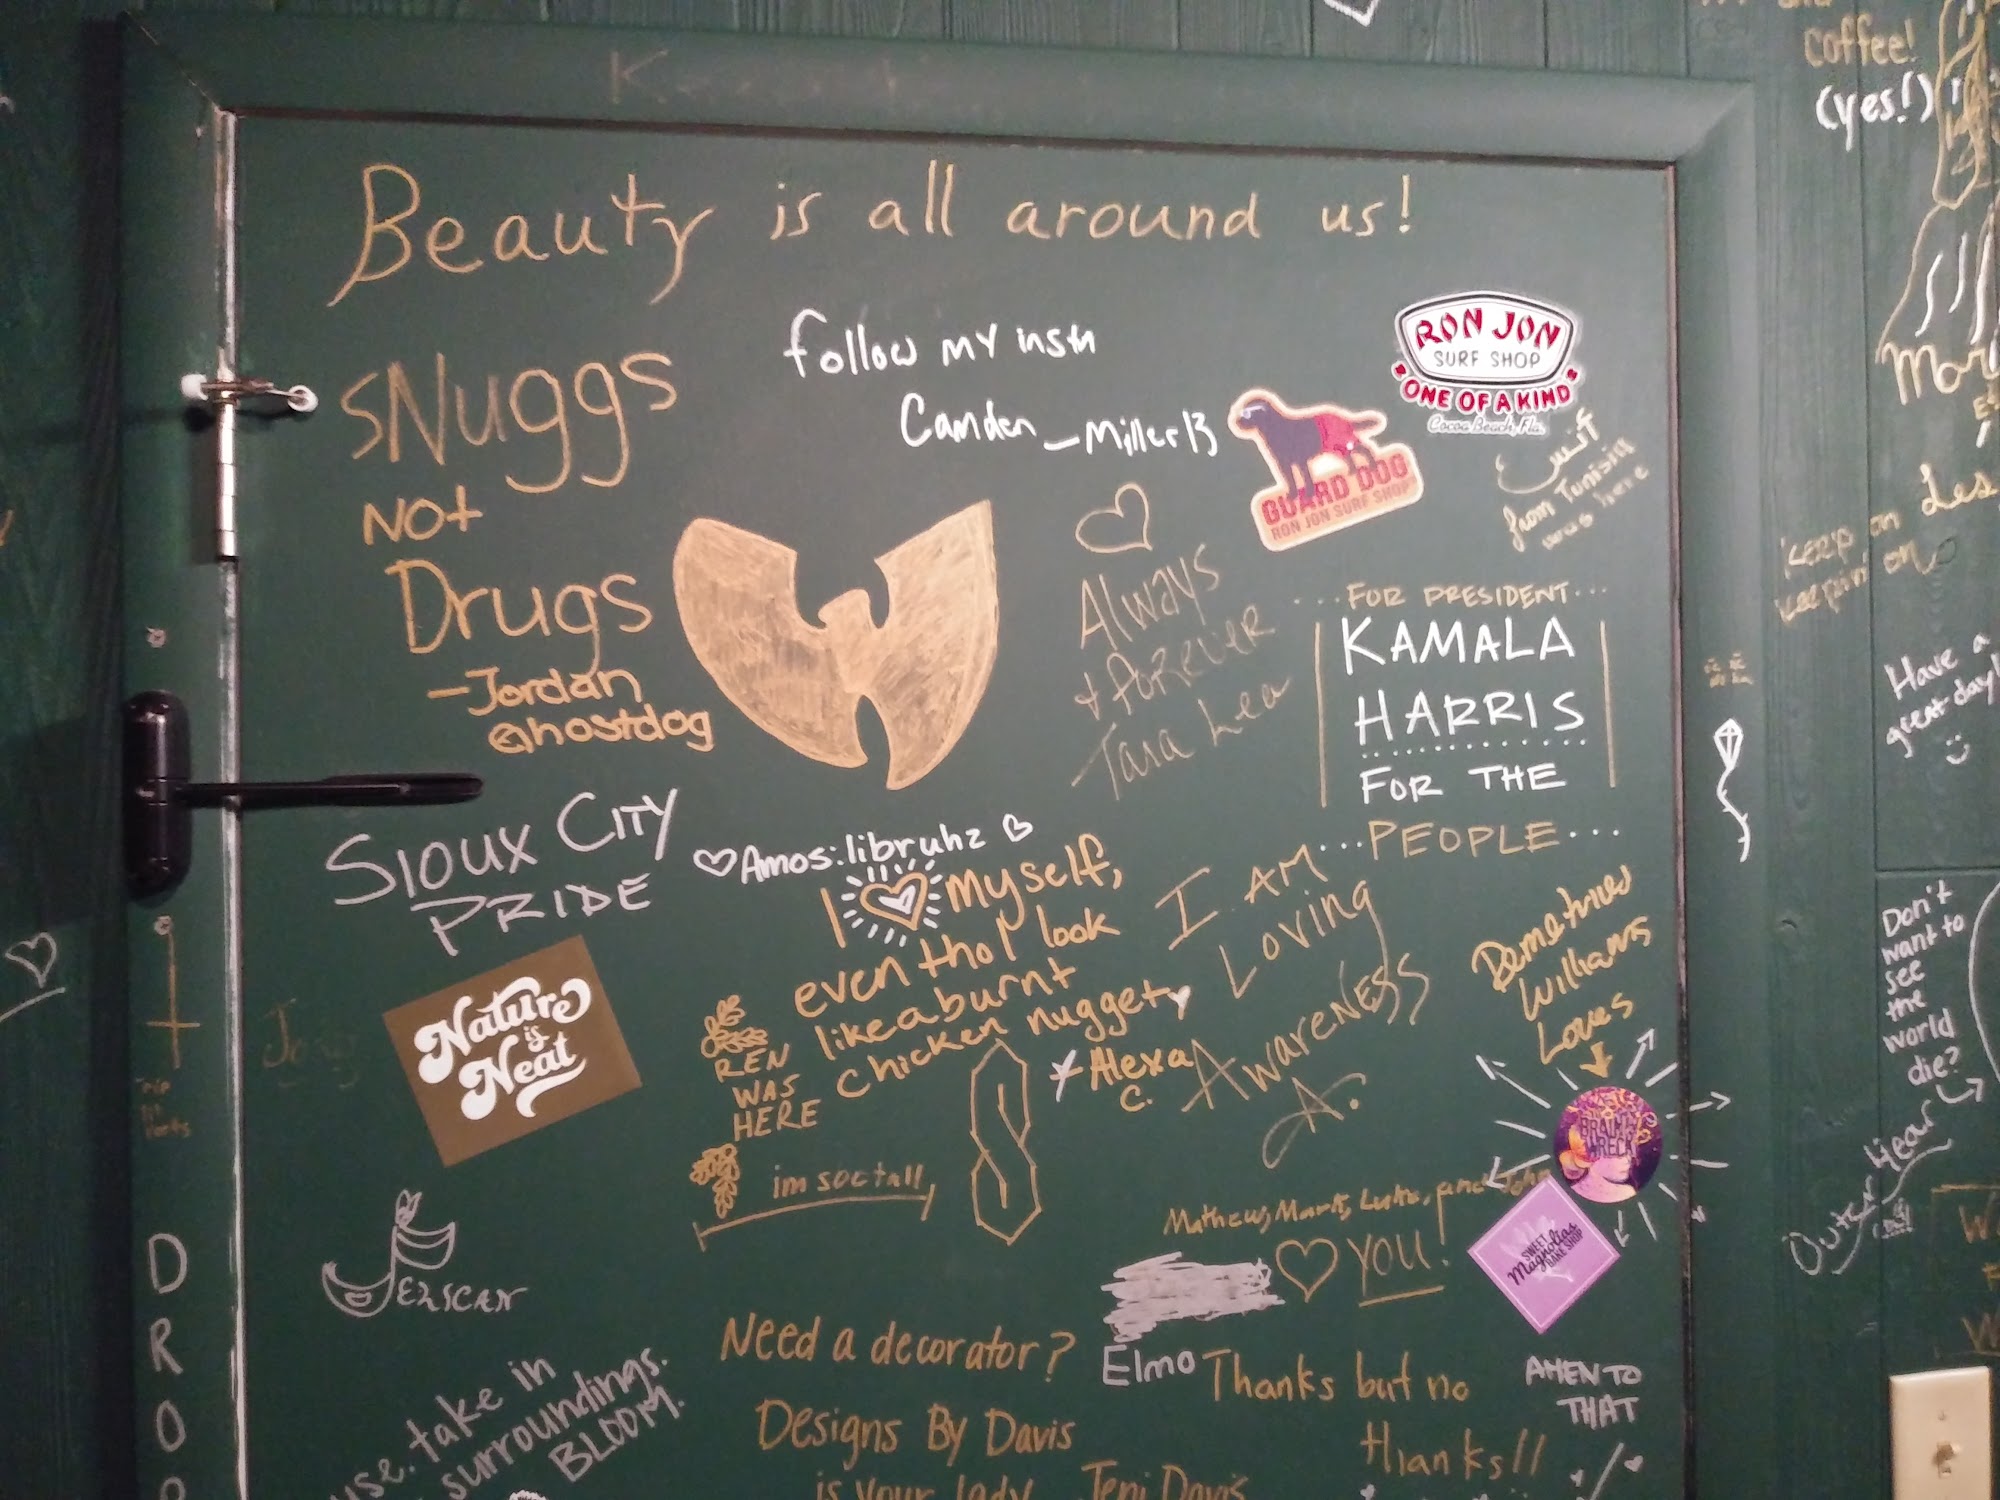 Beauty is all around us!
sNuggs
Not
Drugs
-Jordan
@hostdog
follow my insta
Camden_Miller13
RON JON
SURF SHOP
ONE OF A KIND
Cocoa Beach, Fla.
GUARD DOG
RON JON SURF SHOP
from Tunisia
was here
Always
& forever
Tara Lea
FOR PRESIDENT
KAMALA
HARRIS
FOR THE
PEOPLE
SIOUX CITY
PRIDE
Amos:libruhz
I myself,
even tho I look
like a burnt
chicken nugget
Alexa
C.
I AM
Loving
AwareNESS
A.
Demetrius
Williams
Loves
BRAIN
WRECK
Nature
is
Neat
REN
WAS
HERE
im soc tall
Mathew, Mark, Luke, and John
YOU!
SWEET
Magnolias
BAKE SHOP
Need a decorator?
Designs By Davis
is your lady
Jeni Davis
Elmo
Thanks but no
thanks!!
AMEN TO
THAT
take in
surroundings.
BLOOM.
D
R
O
coffee!
(yes!)
keep on
keepin on
Have a
great day!
Don't
want to
see
the
world
die?